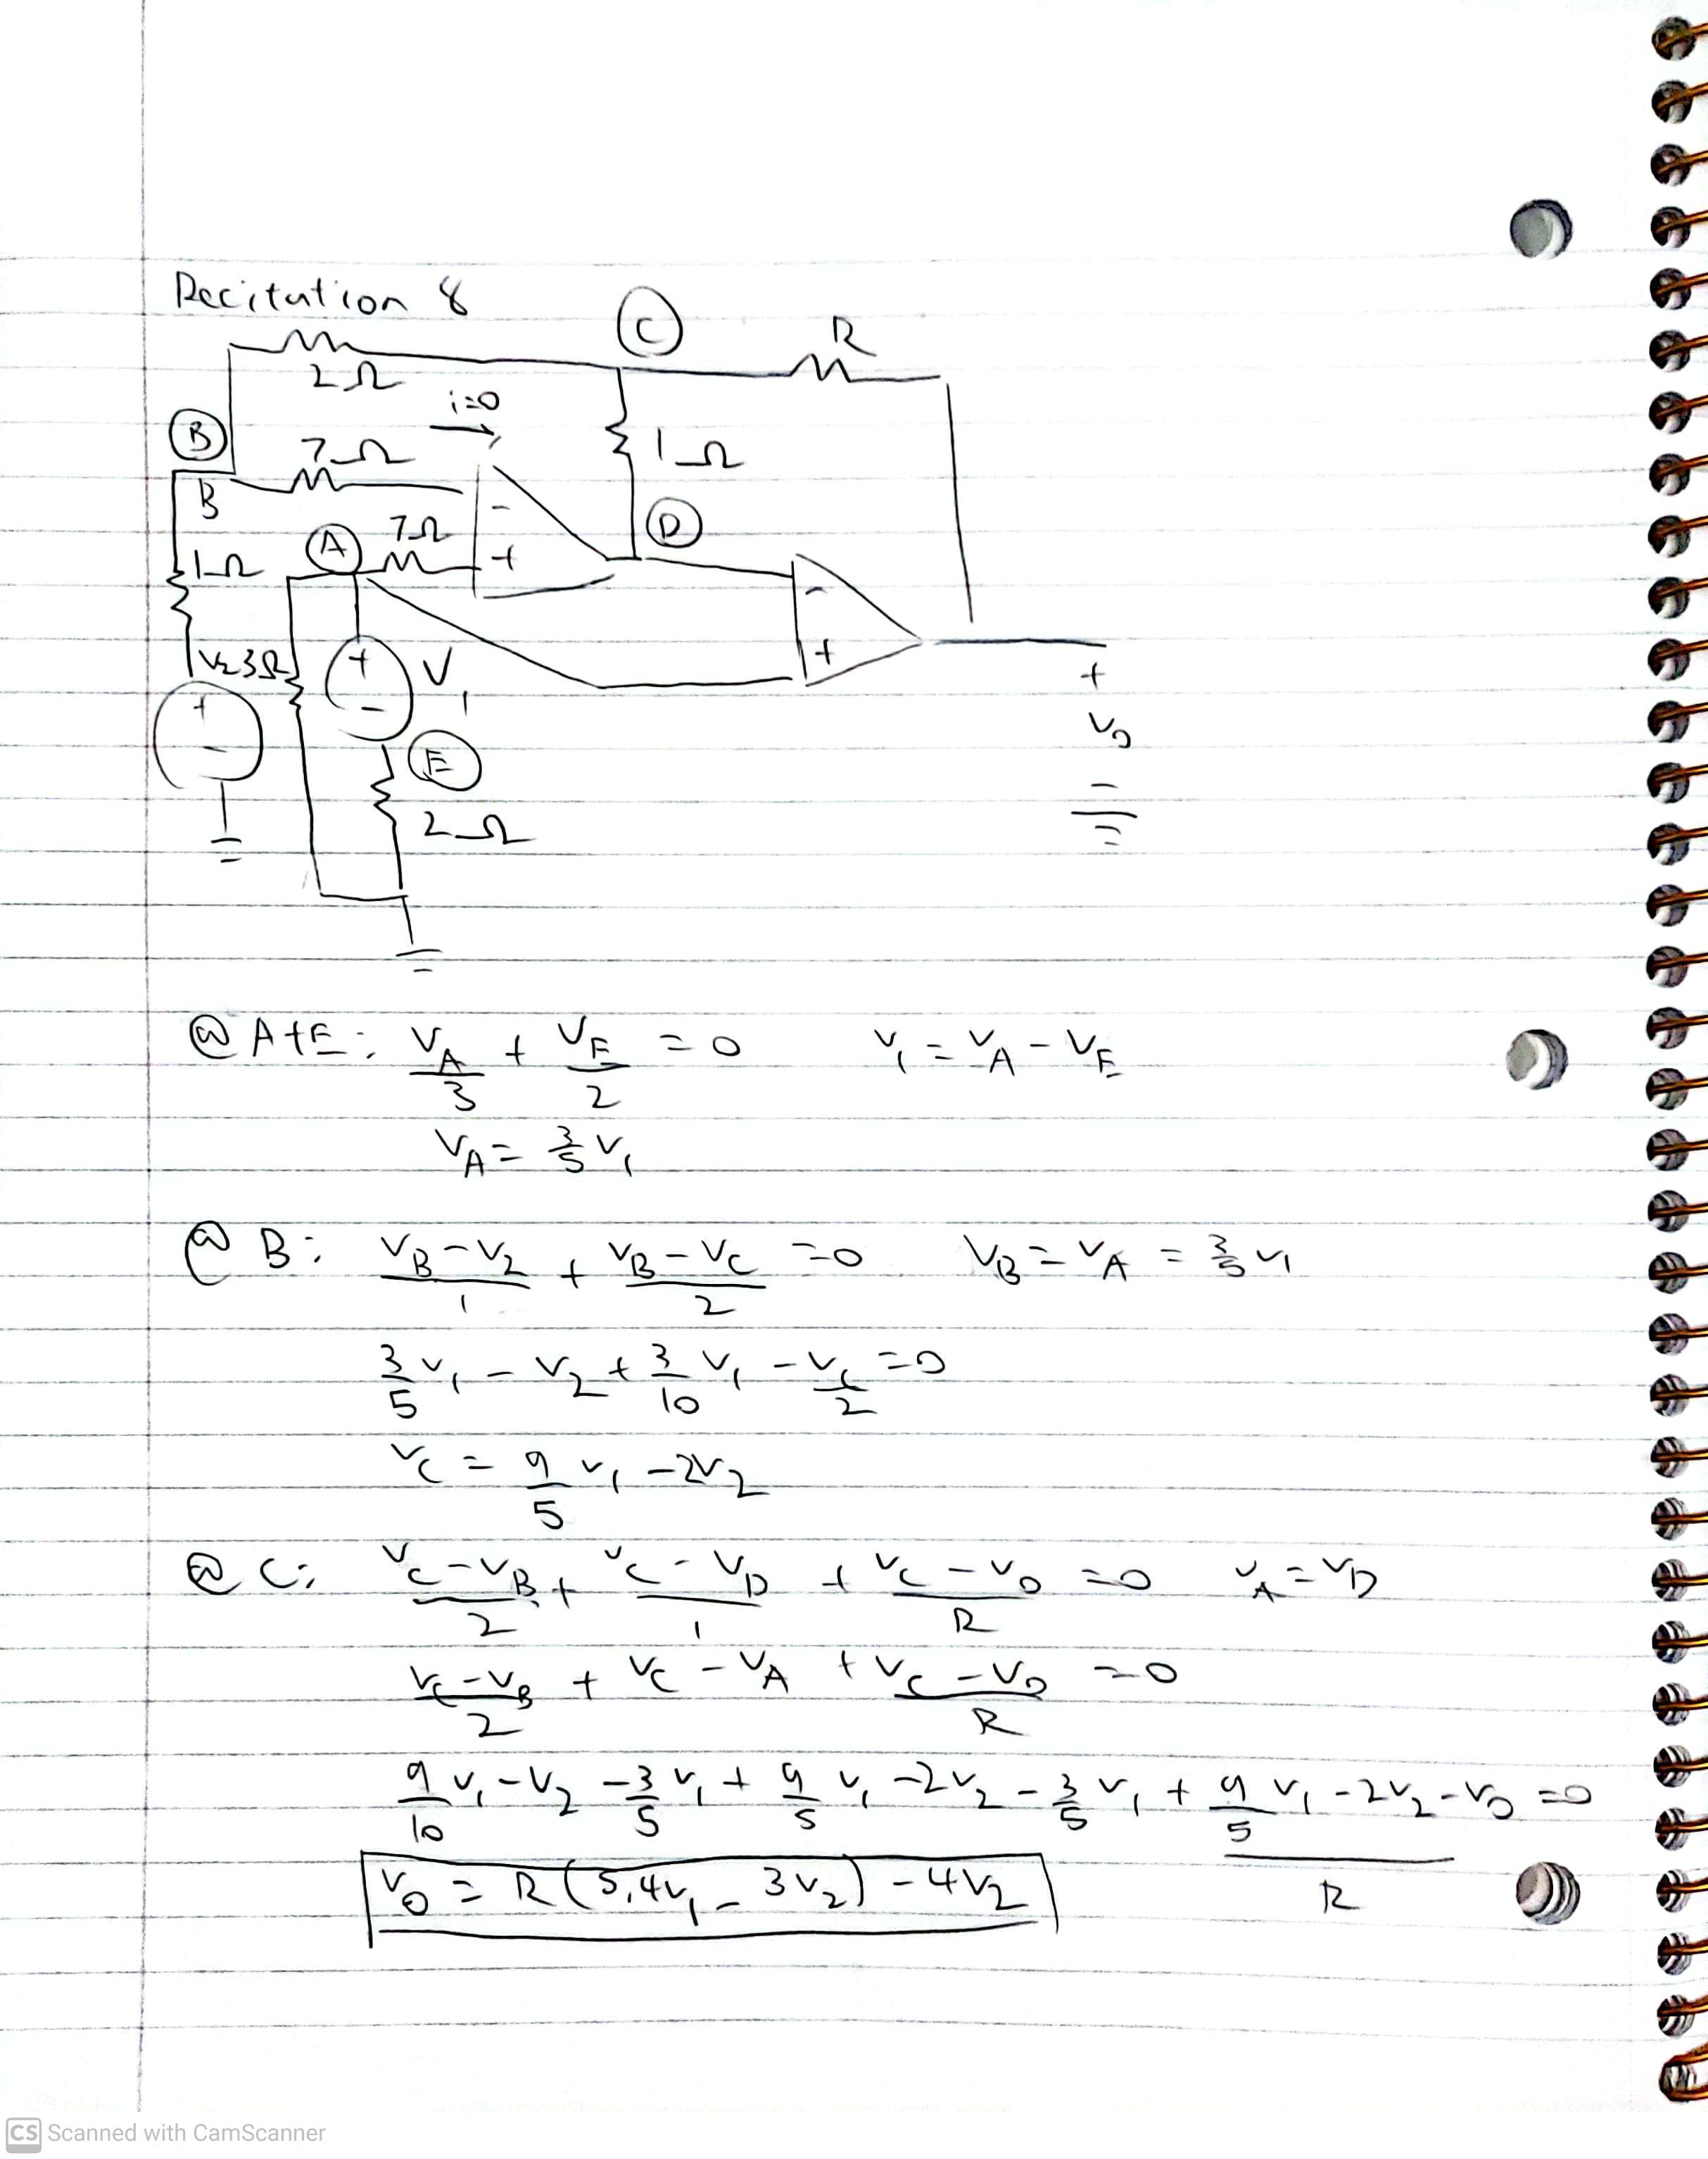 Recitation 8
C
R
2Ω
i=0
B
7Ω
1Ω
B
-
D
A
7Ω
+
1Ω
-
V2 3Ω
+
V1
+
+
-
+
-
vo
E
-
2Ω
@ A+E: VA/3 + VE/2 = 0   V1 = VA - VE
VA = 3/5 V1
@ B: VB-V2/1 + VB-VC/2 = 0   VB = VA = 3/5 V1
3/5 V1 - V2 + 3/10 V1 - VC/2 = 0
VC = 9/5 V1 - 2V2
@ C: VC-VB/2 + VC-VD/1 + VC-VO/R = 0   VA = VD
VC-VB/2 + VC - VA + VC-VO/R = 0
9/10 V1 - V2 - 3/5 V1 + 9/5 V1 - 2V2 - 3/5 V1 + 9/5 V1 - 2V2 - VO/R = 0
VO = R(5.4V1 - 3V2) - 4V2
CS Scanned with CamScanner